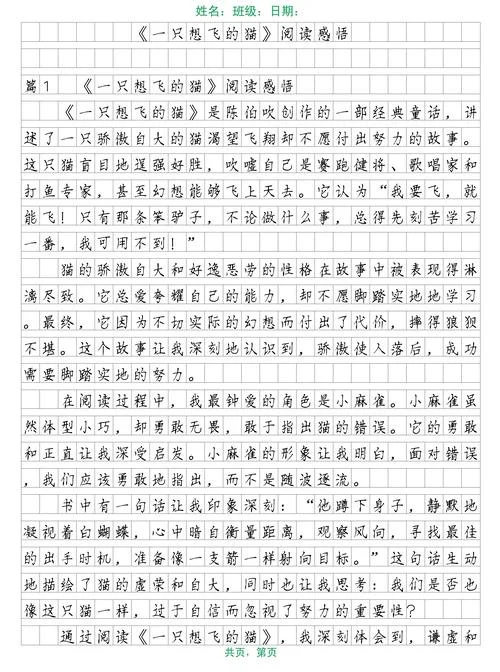 姓名：班级：日期：
《一只想飞的猫》阅读感悟
篇1 《一只想飞的猫》阅读感悟
《一只想飞的猫》是陈伯吹创作的一部经典童话，讲
述了一只骄傲自大的猫渴望飞翔却不愿付出努力的故事。
这只猫盲目地逞强好胜，吹嘘自己是赛跑健将、歌唱家和
打鱼专家，甚至幻想能够飞上天去。它认为“我要飞，就
能飞！只有那条笨驴子，不论做什么事，总得先刻苦学习
一番，我可用不到！”
猫的骄傲自大和好逸恶劳的性格在故事中被表现得淋
漓尽致。它总爱夸耀自己的能力，却不愿脚踏实地地学习
。最终，它因为不切实际的幻想而付出了代价，摔得狼狈
不堪。这个故事让我深刻地认识到，骄傲使人落后，成功
需要脚踏实地的努力。
在阅读过程中，我最钟爱的角色是小麻雀。小麻雀虽
然体型小巧，却勇敢无畏，敢于指出猫的错误。它的勇敢
和正直让我深受启发。小麻雀的形象让我明白，面对错误
，我们应该勇敢地指出，而不是随波逐流。
书中有一句话让我印象深刻：“他蹲下身子，静默地
凝视着白蝴蝶，心中暗自衡量距离，观察风向，寻找最佳
的出手时机，准备像一支箭一样射向目标。”这句话生动
地描绘了猫的虚荣和自大，同时也让我思考：我们是否也
像这只猫一样，过于自信而忽视了努力的重要性？
通过阅读《一只想飞的猫》，我深刻体会到，谦虚和
共页，第页